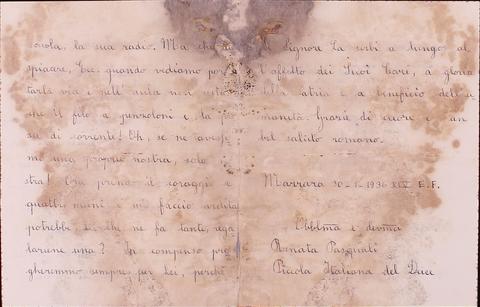 scuola, la sua radio. Ma che
spiacere, Ecc. quando vediamo por
tarla via e nell'aula resta
che il filo a penzoloni e la
sa di corrente! Eh, se ne avess
mo una proprio nostra, solo
stra! Ora prendo il coraggio a
quattro mani e mi faccio ardita
potrebbe, Lei che ne fa tante, rega
larcene una? In compenso pre
gheremmo sempre per Lei, perchè
il Signore La serbi a lungo al
l'affetto dei Suoi Cari, a gloria
della Patria e a beneficio dell'u
manità. Grazie di cuore e un
bel saluto romano.
Marrara 30-1-1936 XIV E.F.
Obbl.ma e dev.ma
Renata Pasquali
Piccola Italiana del Duce